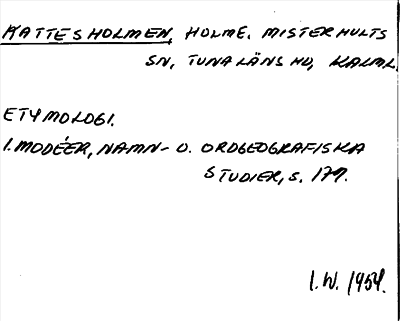 KATTESHOLMEN, HOLME. MISTERHULTS
SN, TUNALÄNS HD, KALML.
ETYMOLOGI.
I. MODÉER, NAMN- O. ORDGEOGRAFISKA
STUDIER, S. 179.
I.W. 1954.